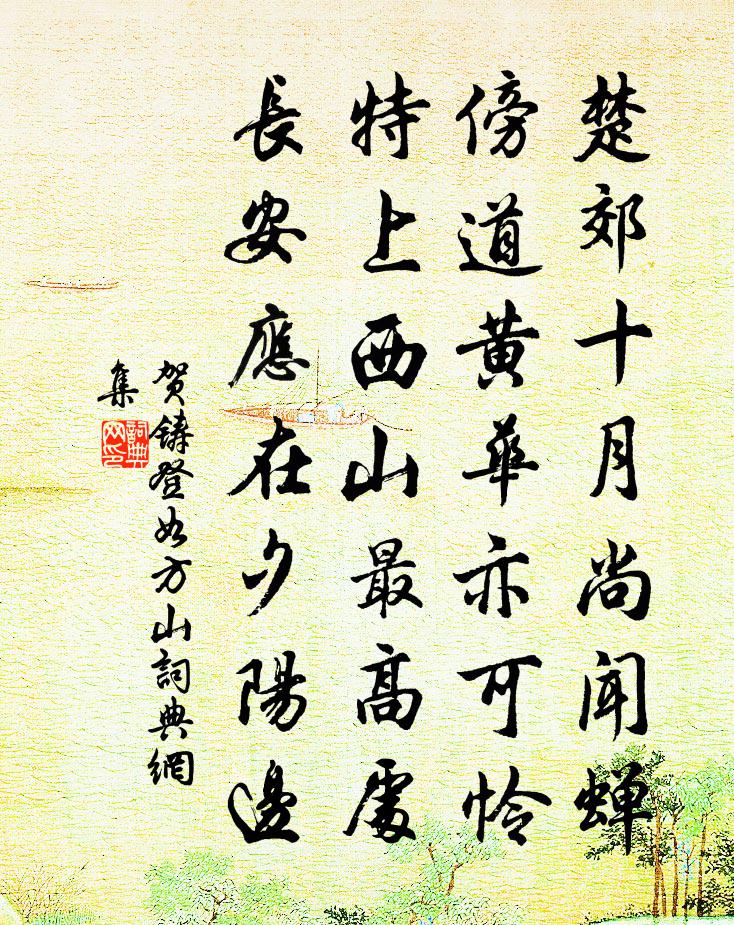 楚郊十月尚闻蝉
傍道黄華亦可怜
特上西山最高處
長安應在夕陽邊
賀鑄登如方山詞典網
集
詞典
网印